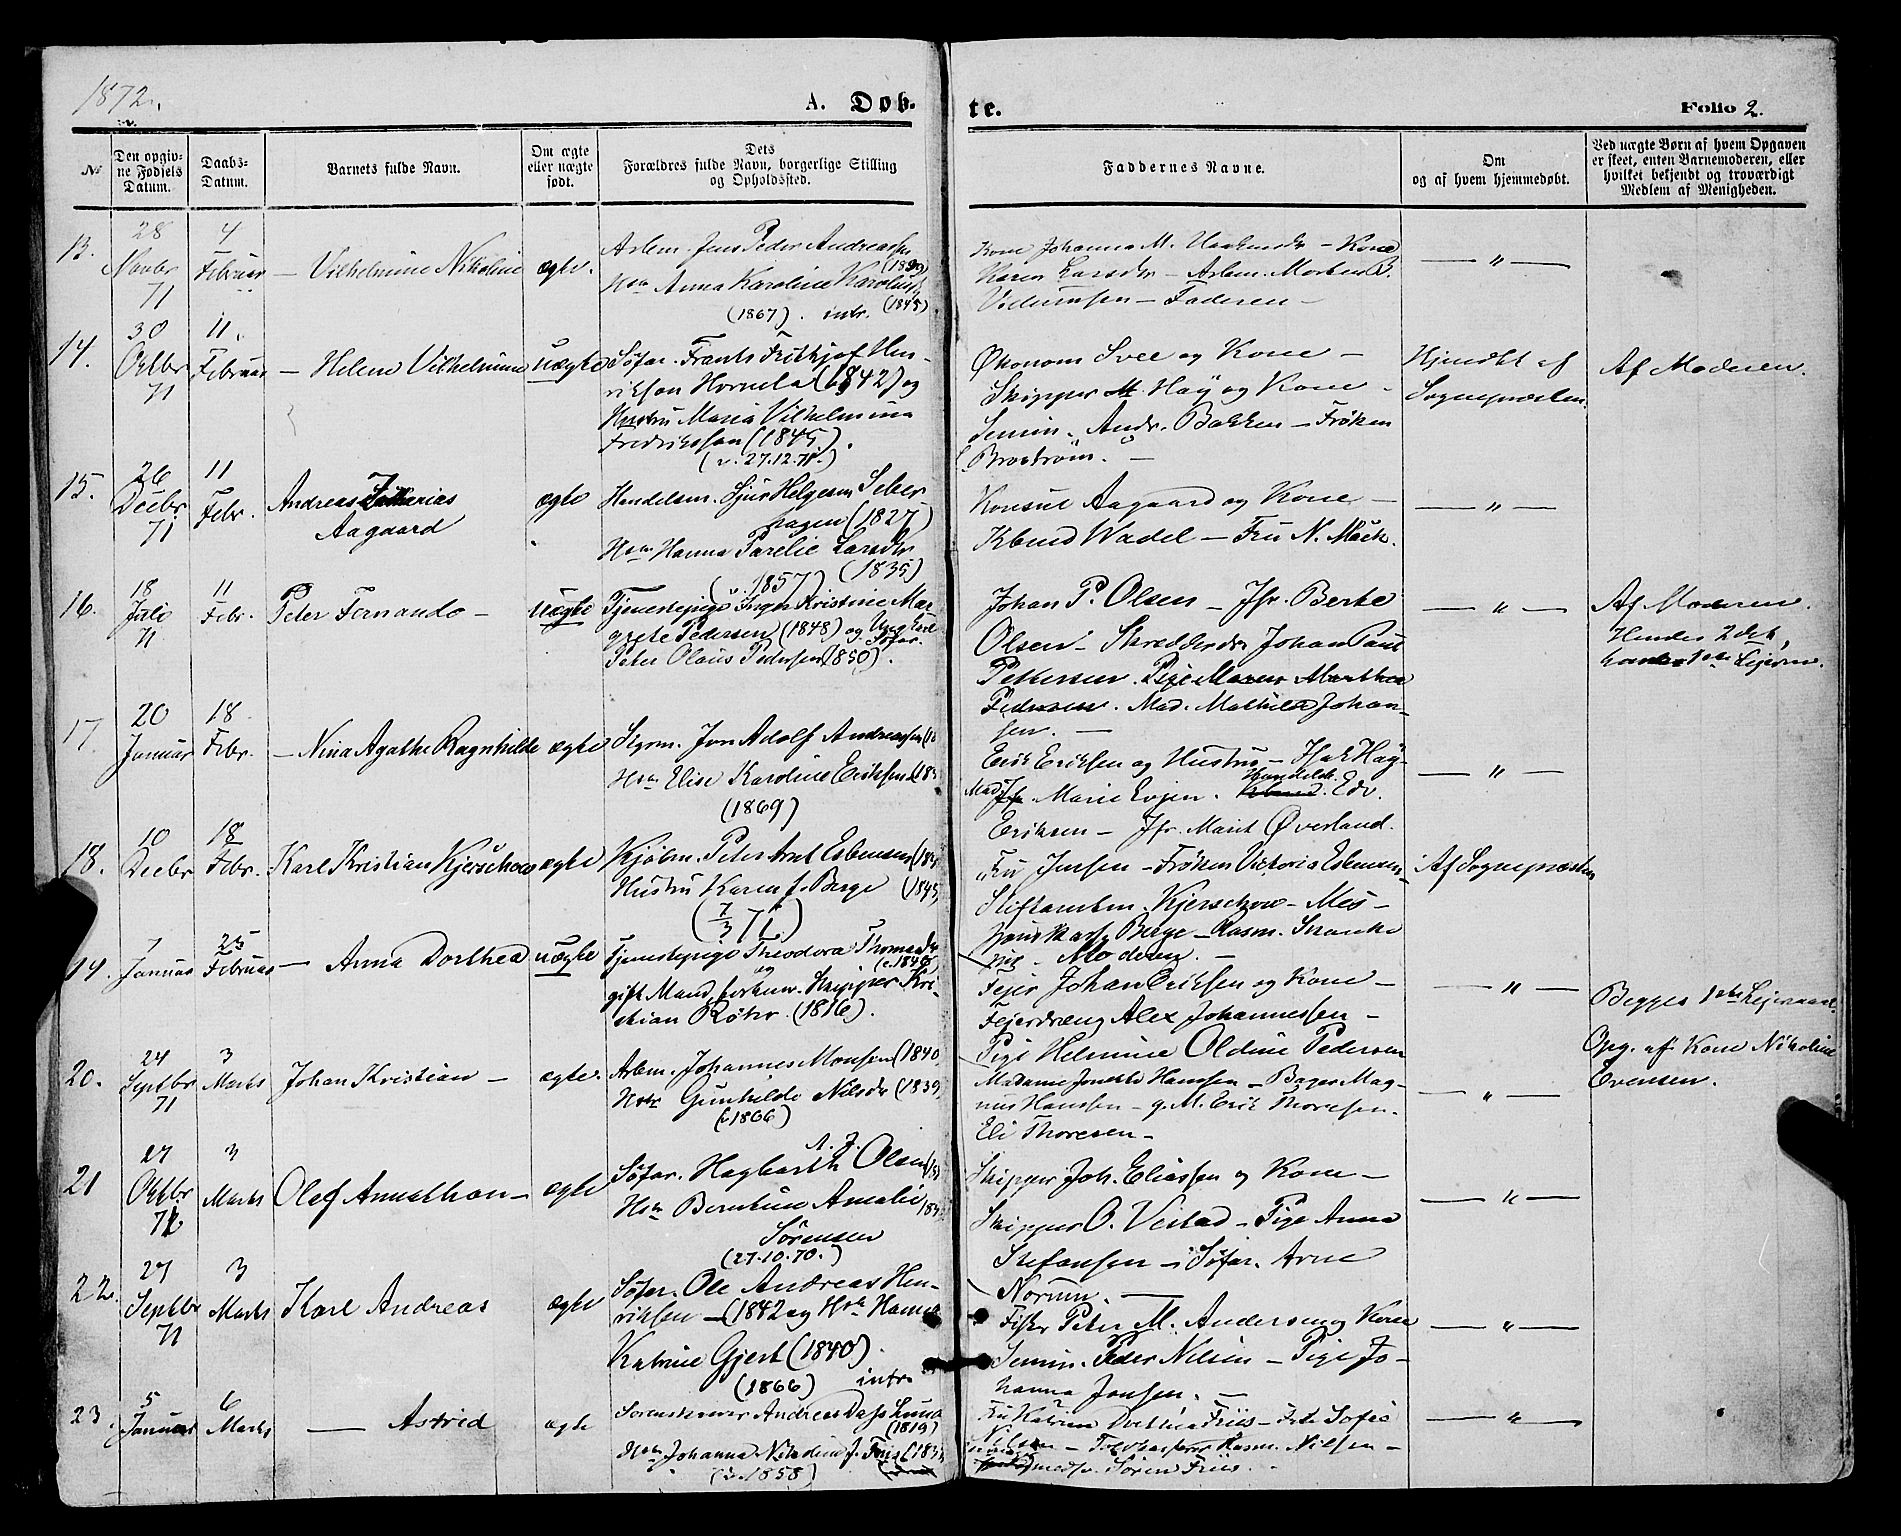 1872.
A. Døb-
te.
Folio 2.
No
Den opgiv-
ne Fødsels
Datum.
Daabs-
Datum.
Barnets fulde Navn.
Om ægte
eller uægte
født.
Dets
Forældres fulde Navn, borgerlige Stilling
og Opholdssted.
Faddernes Navne.
Om
og af hvem hjemmedøbt.
Ved uægte Børn af hvem Opgaven
er skeet, enten Barnemoderen, eller
hvilket bekjendt og troværdigt
Medlem af Menigheden.
13.
28
Novbr
71
4
Februar
— Vilhelmine Nikoline
ægte.
Arbm. Jens Peder Andreassen
Hstr Anna Karoline
(1845)
(1867). intr.
Kone Johanna M. — Kone
Karen Larsdtr — Arbm. Morten B.
— Faderen —
— „ —
14.
30
Oktbr
71
11.
Februar
— Helene Vilhelmine
uægte
Søfar. Frants Frithjof Hen-
rikson Horneda (1842) og
Hustru Maria Vilhelmina
Fredriksson (1845).
(v. 27.12.71.)
Økonom Svee og Kone —
Skipper M. Høy og Kone —
Semin. Andr. Bakken — Frøken
Broström. —
Hjemdbt af
Sognepresten
Af Moderen.
15.
26
Decbr
71
11
Febr.
Andreas Zakarias
Aagaard
ægte
Handelsm. Sjur Helgesen Seber-
hagen (1827)
Hstr Hanna Parelie Larsdtr
(v. 1857) (1835)
Konsul Aagaard og Kone —
Kbmd Wadel — Fru N. Mack.
— „ —
16.
18
Julo
71
11
Febr.
Peter Fernando —
uægte
Tjenestepige Inger Kristine Mar-
grete Pedersen (1848) og Ungkarl
Søfar.
Peter Olaus Pedersen (1850).
Johan P. Olsen — Jfr. Berte
Olsen — Skrædder Johan Paul
Pettersen. Pige Maren Marthea
Pedersen. Mad. Mathilde Johan-
sen. —
— „ —
Af Moderen.
Hendes 2det,
hans 1ste Lejerm.
17.
20
Januar
18
Febr.
— Nina Agathe Ragnhilde
ægte
Styrm. Jon Adolf Andreassen
Hstr Elise Karoline Eriksen
(1869)
Erik Eriksen og Hustru — Isak Hag-
Mad. Marie Evjen. Handelsb. Edv.
Eriksen — Jfr. Marit Øverland.
— „ —
18.
10
Decbr
18
Febr.
Karl Kristian Kjerschow
ægte
Kjøbm. Peter Arnt Esbensen
Hustru Karen f. Berge (1845)
(7/3 71.)
Fru Jensen — Frøken Victoria Esbensen
Stiftamtm. Kjerschow —
Berge — Rasm. Skanke
— Moderen. —
Af Sognepresten
19.
7
Januar
25
Februar
— Anna Dorthea
uægte
Tjenestepige Theodora
og
gift Mand, forhenv. Skipper Kri-
stian Röhr. (1816).
Fejer Johan Eriksen og Kone —
Fejerdreng Alex Johannessen —
Pige Helmine Oldine Pedersen
— „ —
Begges 1ste Lejermaal
Opg. af Kone Nikoline
Evensen.
20.
24
Septbr
71
3
Marts
Johan Kristian —
ægte.
Arbm. Johannes Monsen (1840)
Hstr Gunhilde Nilsdtr (1839)
(1866)
Madame Hanssen — Bager Mag-
nus Hanssen — g. M. Erik Thoresen.
Eli Thoresen —
— „ —
21
27
Oktbr
71
3
Marts
Olof Annathon —
ægte
A. J.
Søfar. Hagbarth Olsen
Hstr Berntine Amalie
Sørensen
(27.10.70.)
Skipper Joh. Eliassen og Kone —
Skipper O. Veistad — Pige Anna
Stefansen — Søfar. Arne
Norum. —
— „ —
22.
27
Septbr
71
3
Marts
Karl Andreas
ægte
Søfar. Ole Andreas Hen-
riksen — (1842 og Hstr Hanna
Katrine Gjert (1840).
(1866) intr.
Fisker Peter M. Andersen og Kone
Semin. Peder Nilsen — Pige Jo-
hanna Jensen. —
— „ —
23.
5
Januar
6
Marts
— Astrid
ægte
Sorenskriver Andreas Dass Lund
(1819)
Hstr Johanna Nikoline f. Friis
(v. 1858)
Fru Katrine Dorthea Friis — Frk Sofie
Nilsen — Rasm. Nilsen —
Søren Friis. —
— „ —